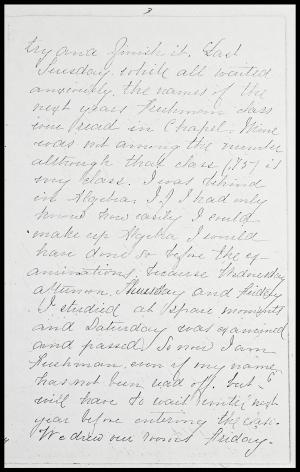 3
try and finish it. Last
Tuesday while all waited
anxiously the names of the
next years Freshman class
were read in Chapel. Mine
was not among the number
although that class ('75) is
my class. I was behind
in Algebra. If I had only
known how easily I could
make up Algebra I would
have done so before the ex-
aminations, because Wednesday
afternoon, Thursday and Friday
I studied at spare moments
and Saturday was examined
and passed. So now I am
Freshman, even if my name
has not been read off, but
will have to wait until next
year before entering the class.
We drew our rooms Friday.